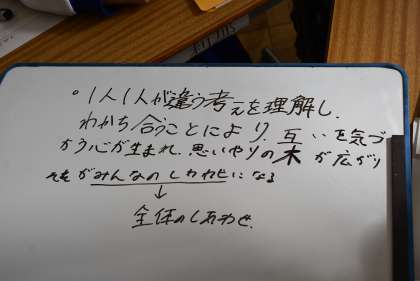 。1人1人が違う考えを理解し、
わかち合うことにより、互いを気づ
かう心が生まれ、思いやりの木が広がり
それがみんなのしあわせになる
↓
全体のしあわせ。